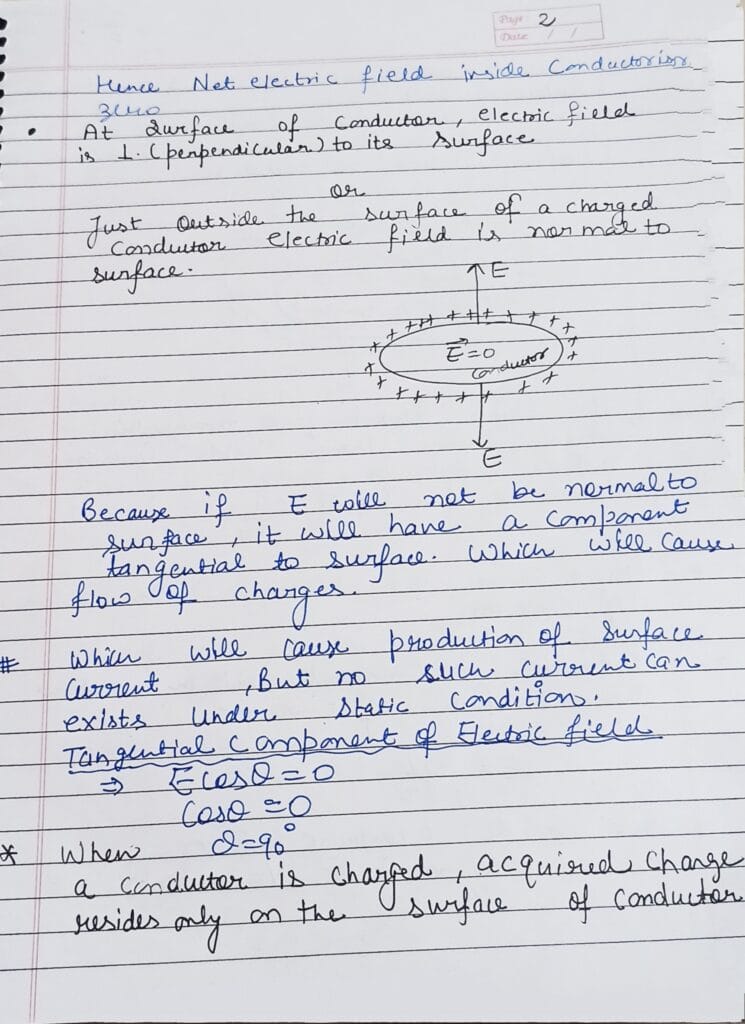 Page 2
Date / /
Hence Net electric field inside Conductor is
zero
• At Surface of Conductor, electric field
is ⊥. (perpendicular) to its surface
or
Just outside the surface of a charged
Conductor electric field is normal to
surface.
E
+ + ++ + ++ + + + + +
E⃗=0
Conductor
+ + + + + + + + +
E
Because if E will not be normal to
surface, it will have a component
tangential to surface. Which will cause
flow of charges.
# Which will cause production of Surface
Current, But no such current can
exists under static condition.
Tangential Component of Electric field
⇒ E cosθ = 0
Cosθ = 0
* When θ=90°
a conductor is charged, acquired charge
resides only on the surface of conductor